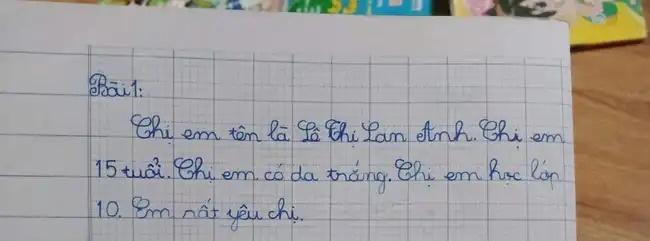 Bài 1:
Chị em tên là Lê Thị Lan Anh. Chị em
15 tuổi. Chị em có da trắng. Chị em học lớp
10. Em rất yêu chị.